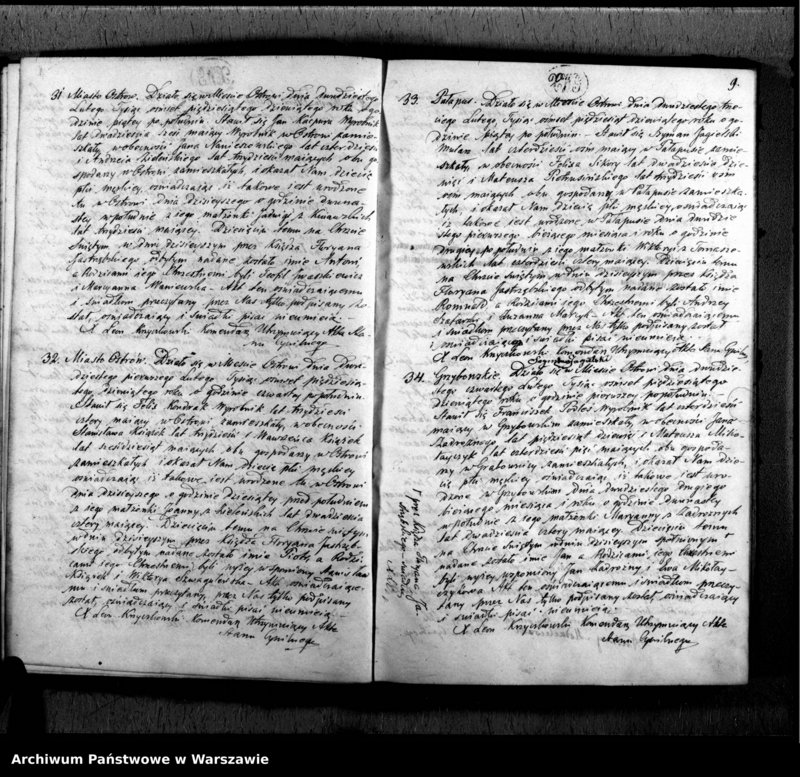 31 Miasto Ostrów. Działo się w Mieście Ostrowi dnia dwudziestego
Lutego Tysiąc ośmset pięćdziesiątego dziewiątego roku o go
dzinie piątej po południu. Stawił się Jan Kacpura Wyrobnik
lat dwadzieścia sześć mający Wyrobnik w Ostrowi zamie
szkały, w obecności Jana lat czterdzieści
i Andrzeja lat trzydzieści mających obu go
spodarzy w Ostrowi zamieszkałych, i okazał Nam dziecię
płci męzkiej, oświadczając iż takowe jest urodzone
tu w Ostrowi dnia dzisiejszego o godzinie dwuna
stej w południe z jego małżonki Jadwigi z
lat trzydzieści mającej. Dziecięciu temu na Chrzcie
Świętym w dniu dzisiejszym przez Księdza Floryana
Jastrzębskiego odbytym nadane zostało imie Antoni,
a Rodzicami jego Chrzestnemi byli Teofil
i Maryanna Akt ten oświadczającemu
i Świadkom przeczytany przez Nas tylko podpisany zo
stał, oświadczający i świadki pisać nieumieją.
X Leon Krydowski Komendarz Utrzymujący Akta Sta
nu Cywilnego
32. Miasto Ostrów. Działo się w Mieście Ostrowi dnia Dwu
dziestego pierwszego Lutego Tysiąc ośmset pięćdziesią
tego dziewiątego roku o godzinie czwartej po południu.
Stawił się Felix Kondrak Wyrobnik lat trzydzieści
cztery mający w Ostrowi zamieszkały, w obecności
Stanisława Książek lat trzydzieści i Wawrzeńca Książek
lat sześćdziesiąt mających, obu gospodarzy w Ostrowi
zamieszkałych i okazał Nam dziecię płci męzkiej
oświadczając iż takowe jest urodzone tu w Ostrowi
dnia dzisiejszego o godzinie dziesiątej przed południem
z jego małżonki Joanny z lat dwadzieścia
cztery mającej. Dziecięciu temu na Chrzcie Świętym
w dniu dzisiejszym przez Księdza Floryana Jastrzęb
skiego odbytym nadane zostało imie Piotr, a Rodzi
cami jego Chrzestnemi byli wyżej wspomniony Stanisław
Książek i Wiktorya Akt ten oświadczające
mu i świadkom przeczytany, przez Nas tylko podpisany
został, oświadczający i świadki pisać nieumieją.
X Leon Krydowski Komendarz Utrzymujący Akta
Stanu Cywilnego
9.
33. Pałapus. Działo się w Mieście Ostrowi dnia dwudziestego trze
ciego Lutego Tysiąc ośmset pięćdziesiąt dziewiątego roku o go
dzinie piątej po południu. Stawił się Szyman Jagielski
lat czterdzieści ośm mający w Pałapusie zamie
szkały, w obecności Felixa Sikory lat dwadzieścia dzie
więć i Mateusza lat trzydzieści ośm
mających, obu gospodarzy w Pałapusie zamieszka
łych, i okazał Nam dziecię płci męzkiej, oświadczając
iż takowe jest urodzone w Pałapusie dnia dwudzie
stego pierwszego bieżącego miesiąca i roku o godzinie
drugiej po południu z jego małżonki Wiktoryi z
lat czterdzieści cztery mającej. Dziecięciu temu
na Chrzcie Świętym w dniu dzisiejszym przez Księdza
Floryana Jastrzębskiego odbytym nadane zostało imie
Romuald, a Rodzicami jego Chrzestnemi byli Andrzej
i Zuzanna Akt ten oświadczającemu
i świadkom przeczytany przez Nas tylko podpisany został
i oświadczający i świadki pisać nieumieją.
X Leon Krydowski Komendarz Utrzymujący Akta Stanu Cywilne
34. Działo się w Mieście Ostrowi dnia dwudzie
stego czwartego Lutego Tysiąc ośmset pięćdziesiątego
dziewiątego roku o godzinie pierwszej po południu.
Stawił się Franciszek Podleś Wyrobnik lat czterdzieści
mający w zamieszkały, w obecności Jana
Zadrożnego lat pięćdziesiąt dziewięć i Mateusza Miko
łajczyk lat czterdzieści pięć mających, obu gospoda
rzy w zamieszkałych, i okazał Nam dzie
cię płci męzkiej oświadczając iż takowe jest uro
dzone w dnia dwudziestego drugiego
bieżącego miesiąca i roku o godzinie dwunastej
w południe z jego małżonki Maryanny z Zadrożnych
lat dwadzieścia cztery mającej. Dziecięciu temu
na Chrzcie Świętym w dniu dzisiejszym
nadane zostało imie Jan, a Rodzicami jego Chrzestnemi
byli wyżej wspomniony Jan Zadrożny i Ewa Mikołaj
czykowa Akt ten oświadczającemu i świadkom przeczy
tany przez Nas tylko podpisany został, oświadczający
i świadki pisać nieumieją.
X Leon Krydowski Komendarz Utrzymujący Akta
Stanu Cywilnego
przez Księdza Floryana Ja
strzębskiego
Archiwum Państwowe w Warszawie